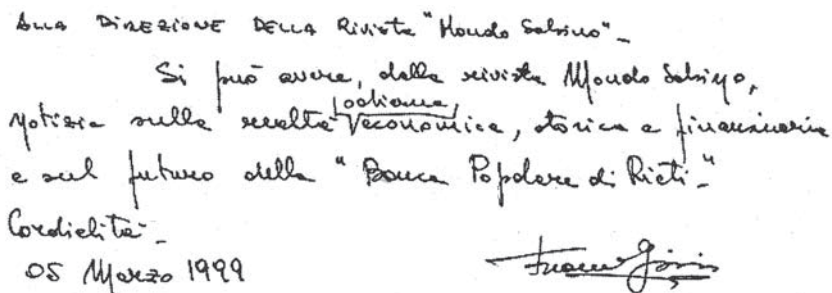 Alla DIREZIONE DELLA Rivista "Mondo Sabino"_
Si può avere, dalla rivista Mondo Sabino,
notizie sulla realtà odierna, economica, storica e finanziaria
e sul futuro della "Banca Popolare di Rieti_"
Cordialità_
05 Marzo 1999